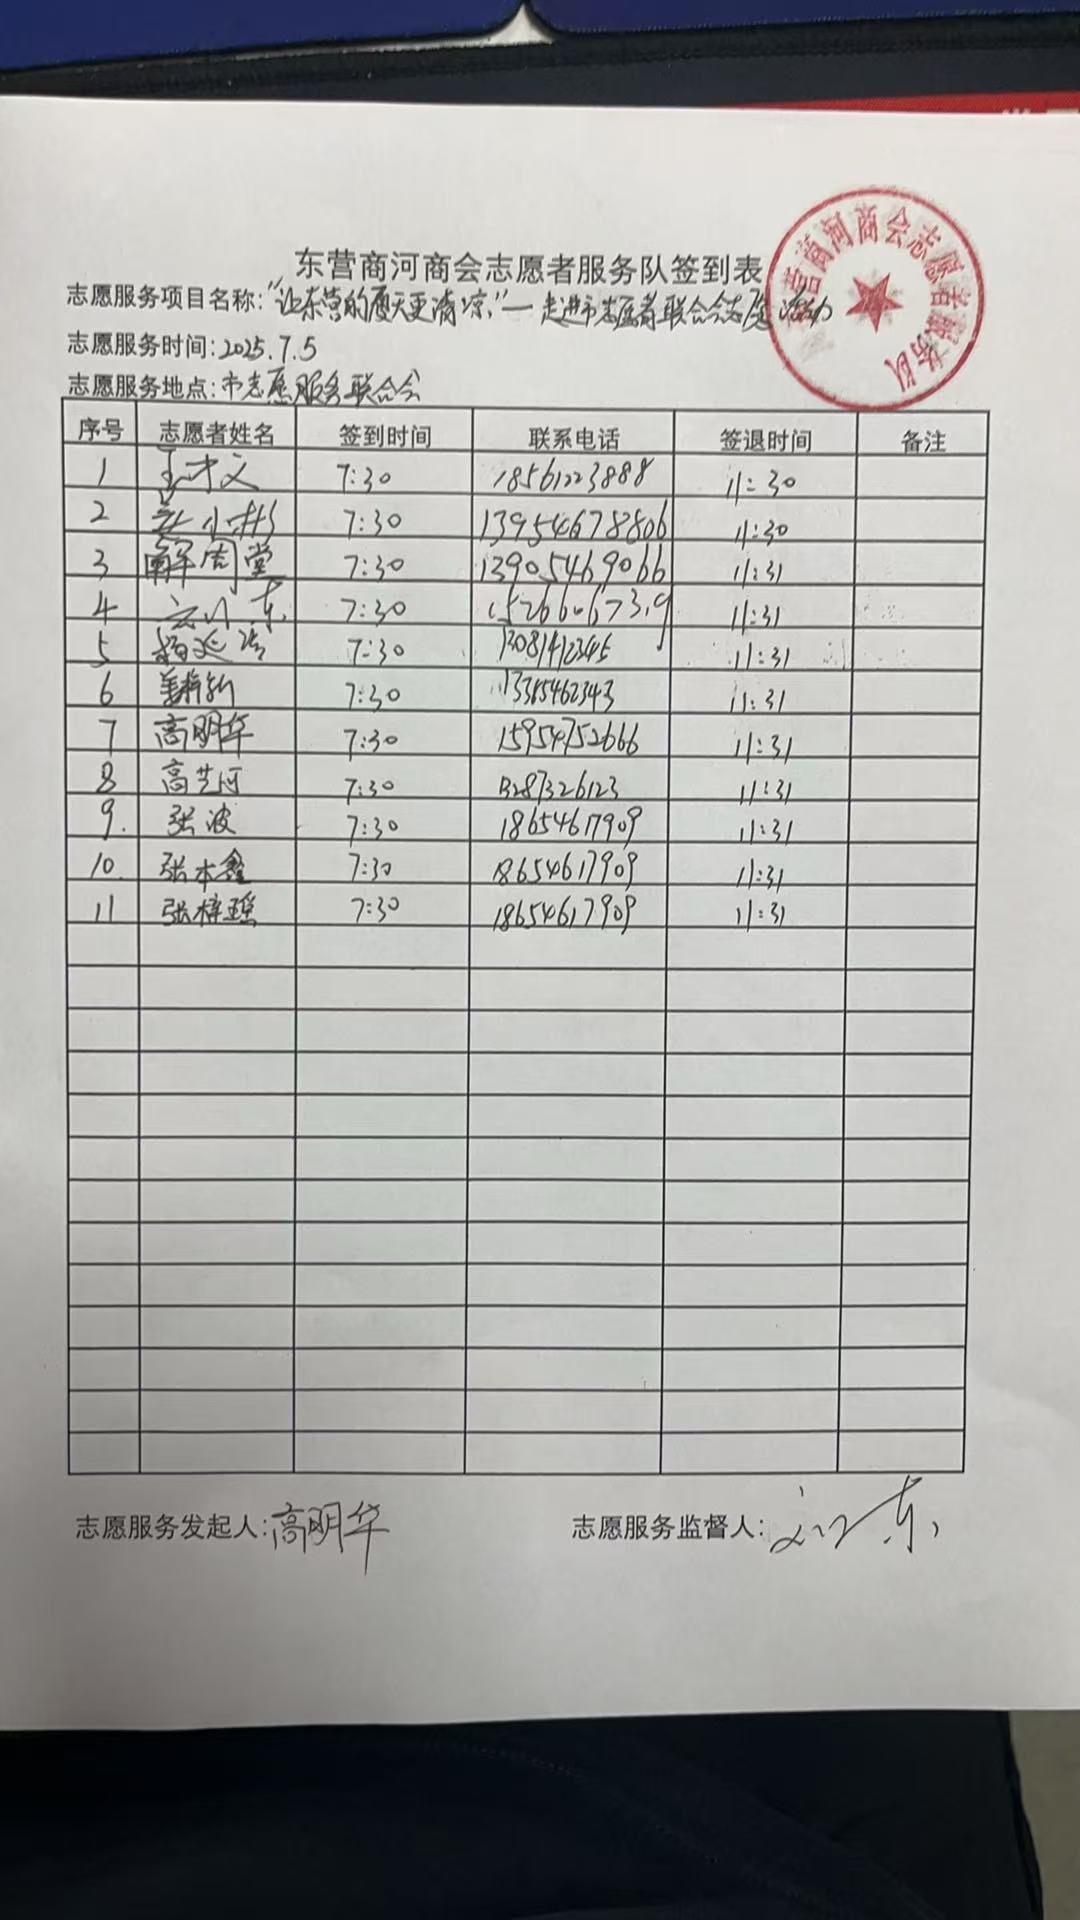 东营商河商会志愿者服务队签到表
志愿服务项目名称:“让东营的夏天更清凉”一走进市志愿者联合会志愿活动
志愿服务时间:2025.7.5
志愿服务地点:市志愿服务联合会
营商河商会志愿者服务队
序号 志愿者姓名 签到时间 联系电话 签退时间 备注
1 王才文 7:30 18561223888 11:30
2 7:30 13954678806 11:30
3 解周堂 7:30 13905469066 11:31
4 7:30 11:31
5 7:30 13081412345 11:31
6 7:30 13365462343 11:31
7 高明华 7:30 15954752666 11:31
8 高艺河 7:30 13287326123 11:31
9. 张波 7:30 18654617909 11:31
10. 张本鑫 7:30 18654617909 11:31
11 张梓瑶 7:30 18654617909 11:31
志愿服务发起人:高明华 志愿服务监督人: